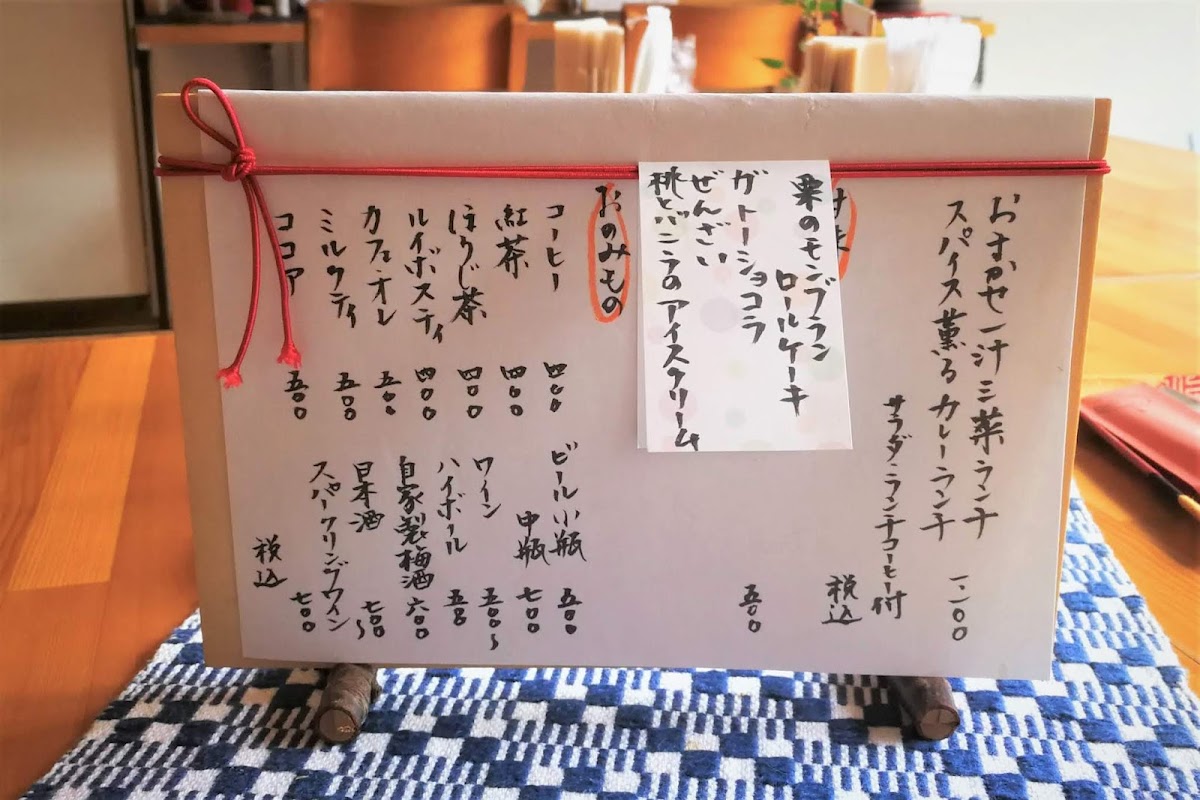 おまかせ一汁三菜ランチ
スパイス薫るカレーランチ 一、一00
サラダ・ランチコーヒー付
税込
栗のモンブラン
ロールケーキ
ガトーショコラ
ぜんざい
桃とバニラのアイスクリーム
五00
おのみもの
コーヒー 四00
紅茶 四00
ほうじ茶 四00
ルイボスティ 四00
カフェ・オレ 五00
ミルクティ 五00
ココア 五00
ビール小瓶 五00
中瓶 七00
ワイン 五00〜
ハイボール 五00
自家製梅酒 六00
日本酒 七00〜
スパークリングワイン 七00
税込